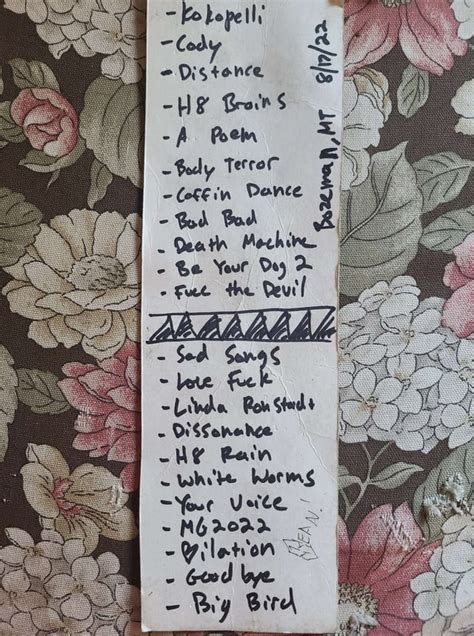 - Kokopelli
- Cody
- Distance
- H8 Brains
- A Poem
- Body Terror
- Coffin Dance
- Bad Bad
- Death Machine
- Be Your Dog 2
- Fuck the Devil
- Sad Songs
- Love Fuck
- Linda Ronstadt
- Dissonance
- H8 Rain
- White Worms
- Your Voice
- MG2022
- ♥ilation
- Goodbye
- Big Bird
Bozeman, MT
8/17/22